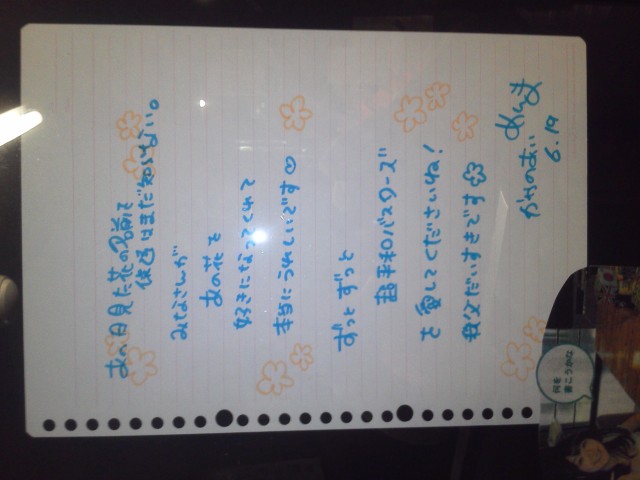 あの日見た花の名前を
僕達はまだ知らない。
みなさんが
あの花を
好きになってくれて
本当にうれしいです♡
ずっとずっと
超平和バスターズ
を愛してくださいね!
秩父だいすきです
めんま
かやのあい
6.19
何を
書こうかな